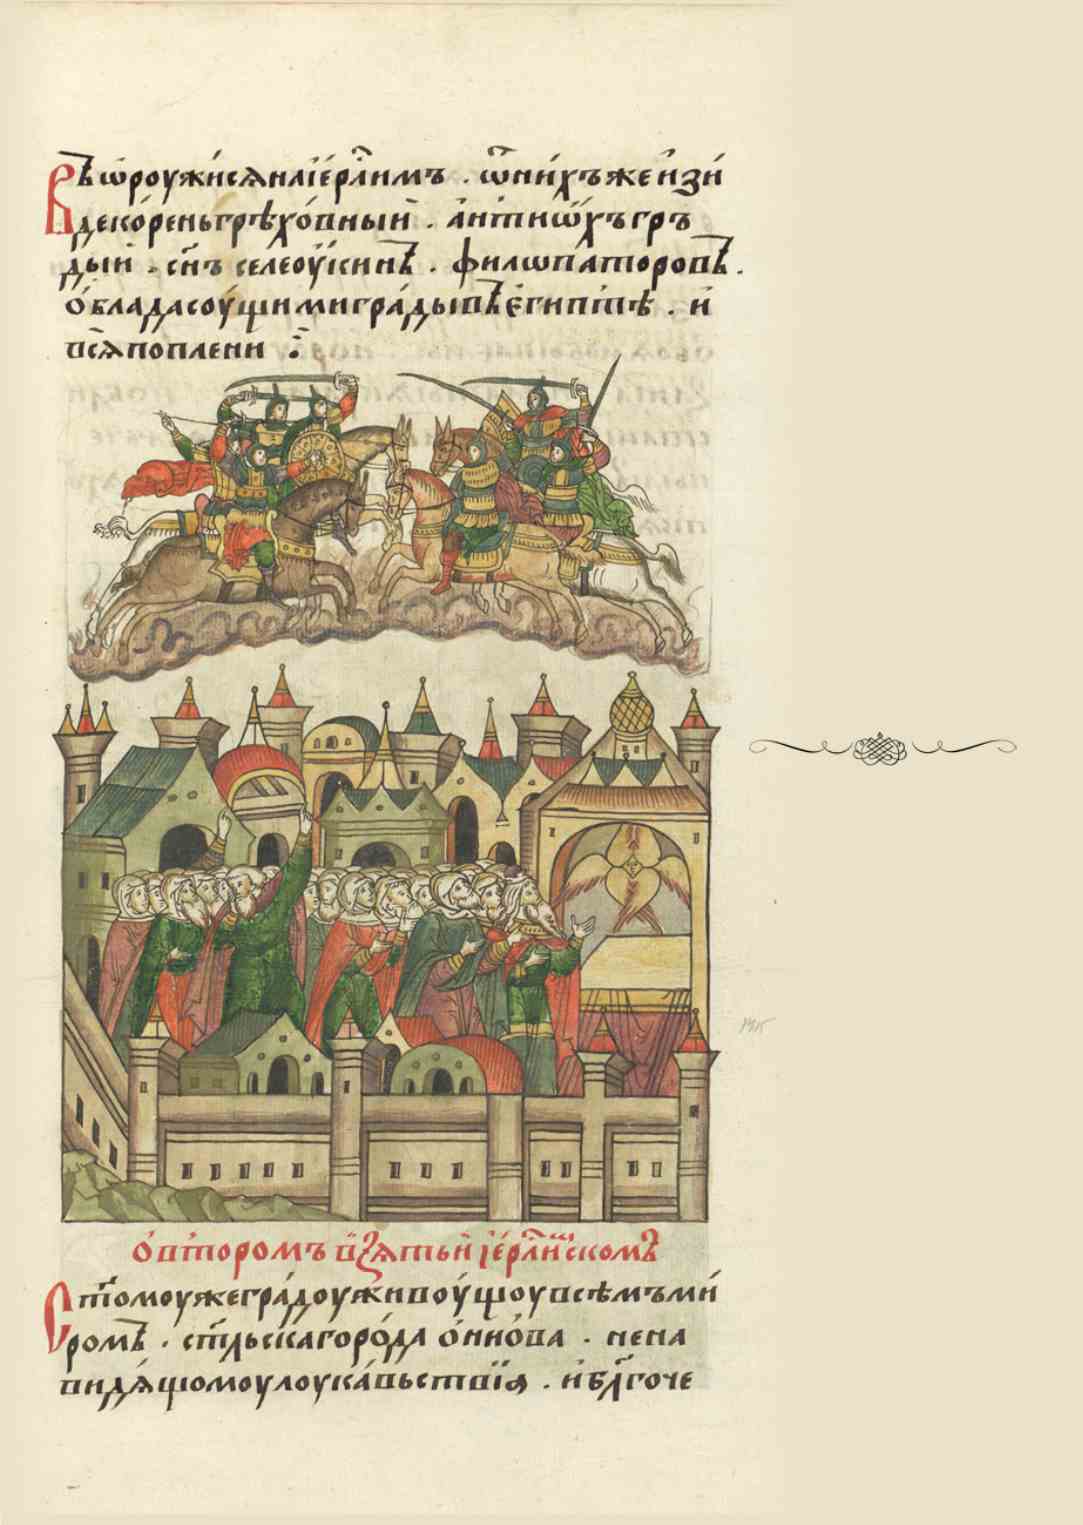 Въѡроужи́сѧнаїе҆рⷭ҇лимъ . ѿни́хъжеи҆зы́
деко́реньгрѣхо́вныи . а҆нтиѡ́хъгръ
дыи . сн҃ъ селеѹ́кинъ . филѡпа́торовъ .
ѻ҆блада́соу́щимигра́дывъе҆гиптѣ . и҆
всѧҀпоплени
ѻ҆второмъ взѧтьи і҆ерⷭ҇ли́мскомъ
Ст҃омоужегра́доуживоу́щоувсѣмъми́
ромъ . ст҃льскагоро́да ѻ҆нио́ва . нена
видѧ́щомоулоука́вьствїѧ . и҆бл҃гоче